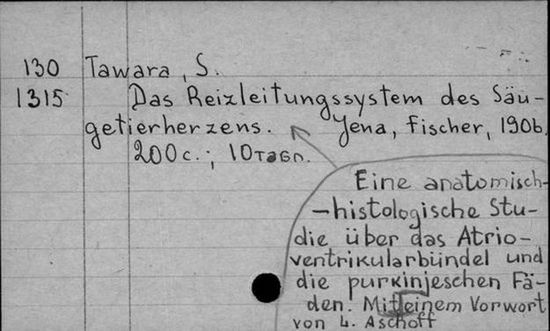 130 Tawara, S.
1315 Das Reizleitungssystem des Säu-
getierherzens. Jena, Fischer, 1906.
200 с.; 10 табл.
Eine anatomisch-
-histologische Stu-
die über das Atrio-
ventrikularbündel und
die purkinjeschen Fä-
den. Mit einem Vorwort
von L. Aschoff